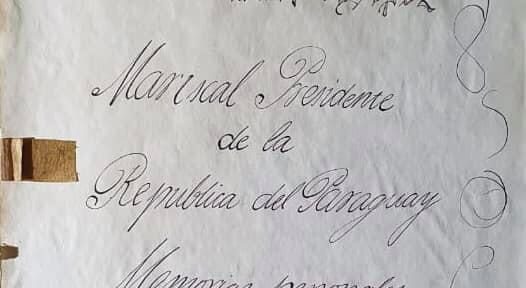 Mariscal Presidente
de la
Republica del Paraguay
Memorias personales